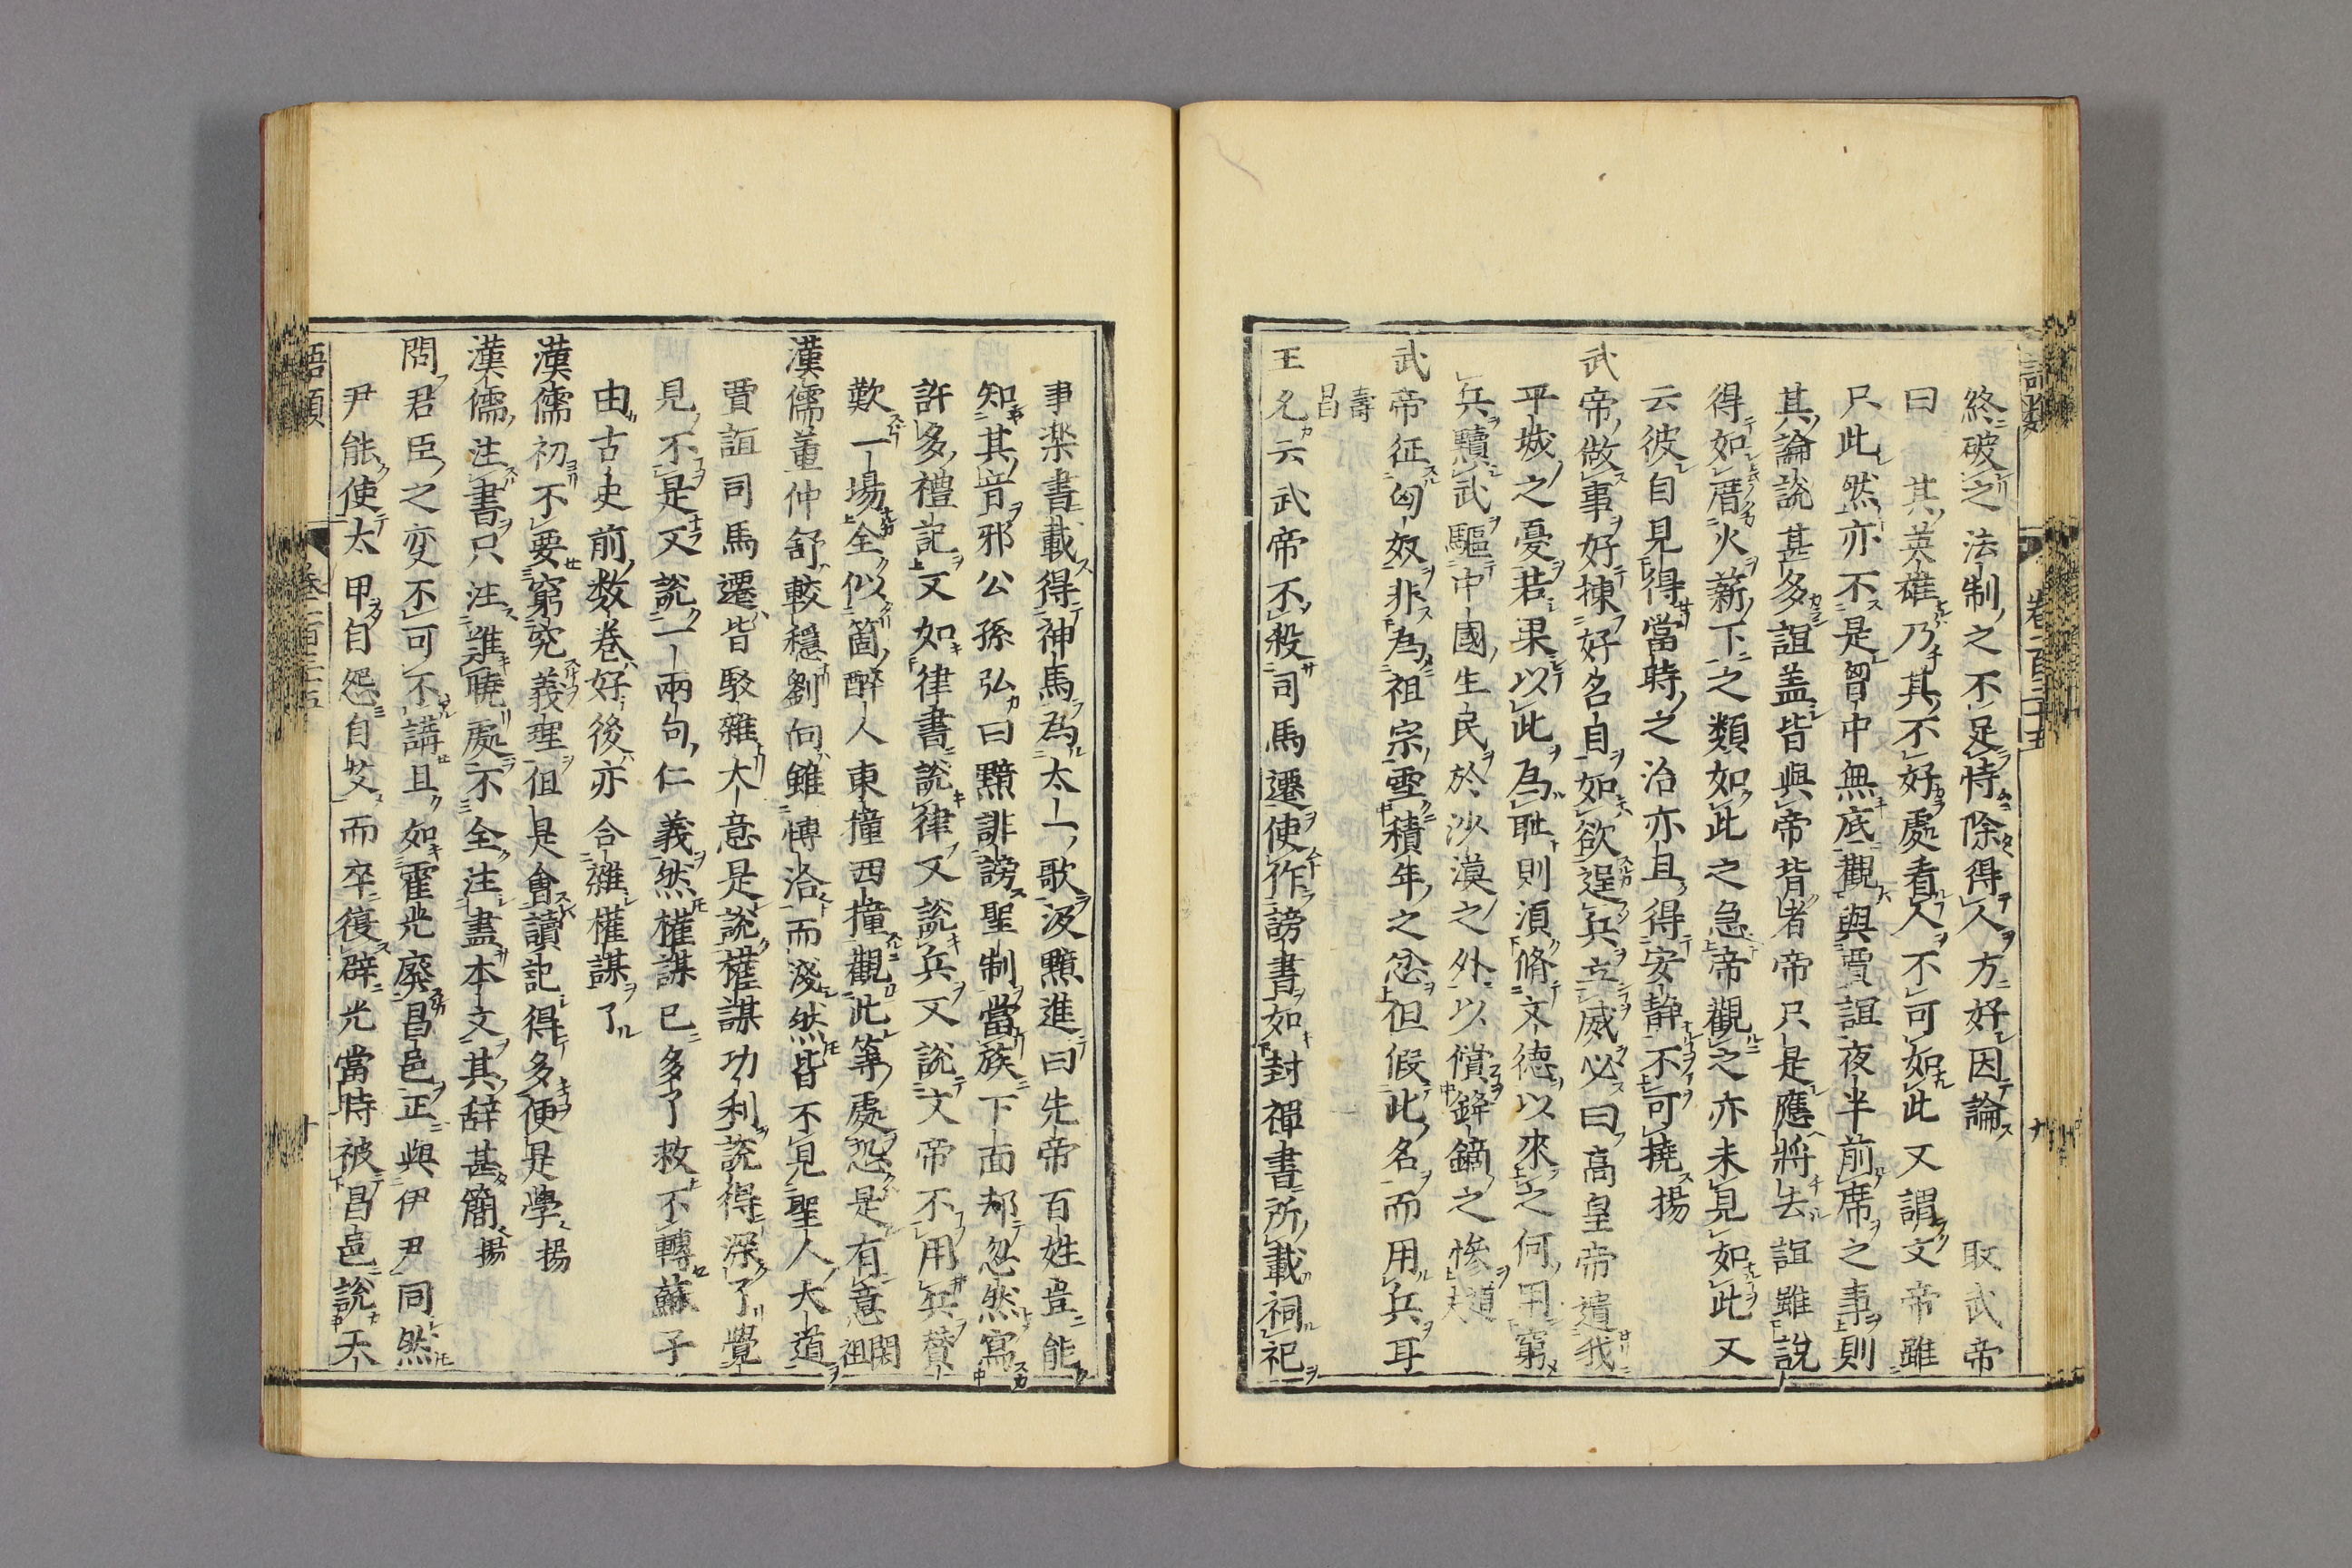 語類 卷一百三十五 十
終破之法制之不足恃除得人方好因論 取武帝
曰 其英雄乃其不好處看人不可如此又謂文帝雖
只此然亦不是胷中無底觀與賈誼夜半前席之事則
其論說甚多誼盖皆與帝背者帝只是應將去誼雖說
得如厝火薪下之類如此之急帝觀之亦未見如此又
云彼自見得當時之治亦且得安静不可撓揚
武帝做事好揀好名目如欲逞兵立威必曰高皇帝遺我
平城之憂若果以此為恥則須脩文德以來之何用窮
兵黷武驅中國生民於沙漠之外以償鋒鏑之慘道夫
武帝征匈奴非為祖宗雪積年之忿但假此名而用兵耳
壽昌
王允云武帝不殺司馬遷使作謗書如封禪書所載祠祀
事樂書載得神馬為太一歌汲黯進曰先帝百姓豈能
知其音邪公孫弘曰黯誹謗聖制當族下面却忽然寫
許多禮記又如律書說律又說兵又說文帝不用兵贊
歎一場全似箇醉人東撞西撞觀此等處恐是有意閎祖
漢儒董仲舒較穩劉向雖博洽而淺然皆不見聖人大道
賈誼司馬遷皆駁雜大意是說權謀功利說得深了覺
見不是又說一兩句仁義然權謀已多了救不轉蘇子
由古史前数巻好後亦合雜權謀了
漢儒初不要窮究義理但是會讀記得多便是學揚
漢儒注書只注難曉處不全注盡本文其辞甚簡揚
問君臣之変不可不講且如霍光廢昌邑正與伊尹同然
尹能使太甲自怨自艾而卒復辟光當時被昌邑說天
語類 卷一百三十五 十